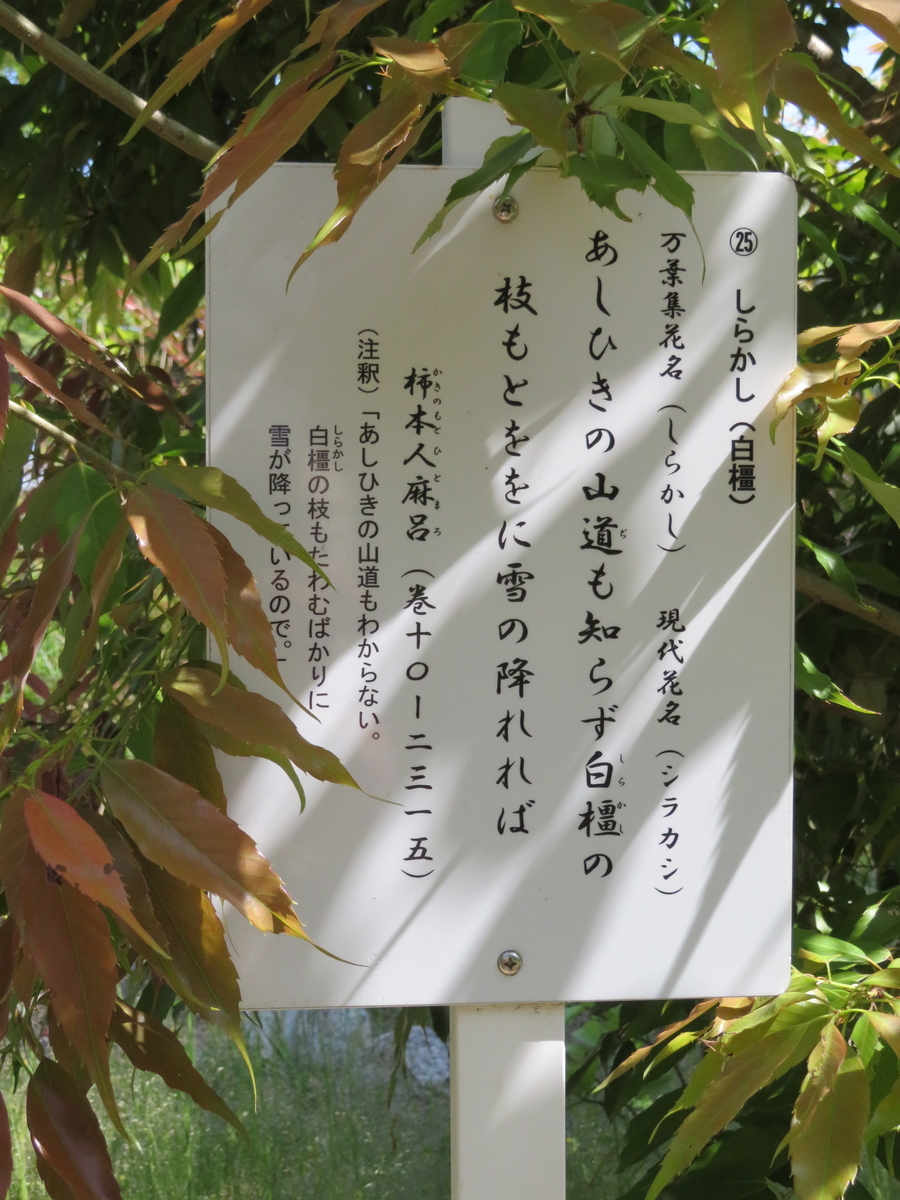 ㉕ しらかし（白橿）
万葉集花名（しらかし） 現代花名（シラカシ）
あしひきの山道も知らず白橿の
枝もとををに雪の降れれば
柿本人麻呂（巻十〇ー二三一五）
（注釈）「あしひきの山道もわからない。
白橿の枝もたわむばかりに
雪が降っているので。」